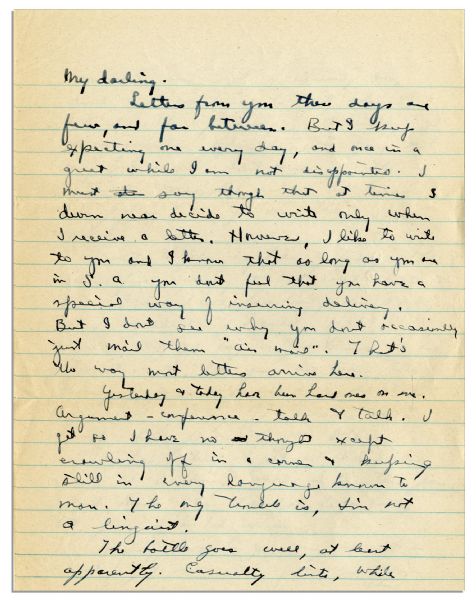 My darling.
Letters from you these days are
few, and far between. But I keep
expecting one every day, and once in a
great while I am not disappointed. I
must say though that at times I
damn near decide to write only when
I receive a letter. However, I like to write
to you and I know that so long as you are
in S. A. you don't feel that you have a
special way of insuring delivery.
But I don't see why you don't occasionally
just mail them "air mail". That's
the way most letters arrive here.
Yesterday & today have been hard ones on me.
Argument - conference - talk & talk. I
get so I have no thought except
crawling off in a corner & keeping
still in every language known to
man. The only trouble is, I'm not
a linguist.
The battle goes well, at least
apparently. Casualty lists, while